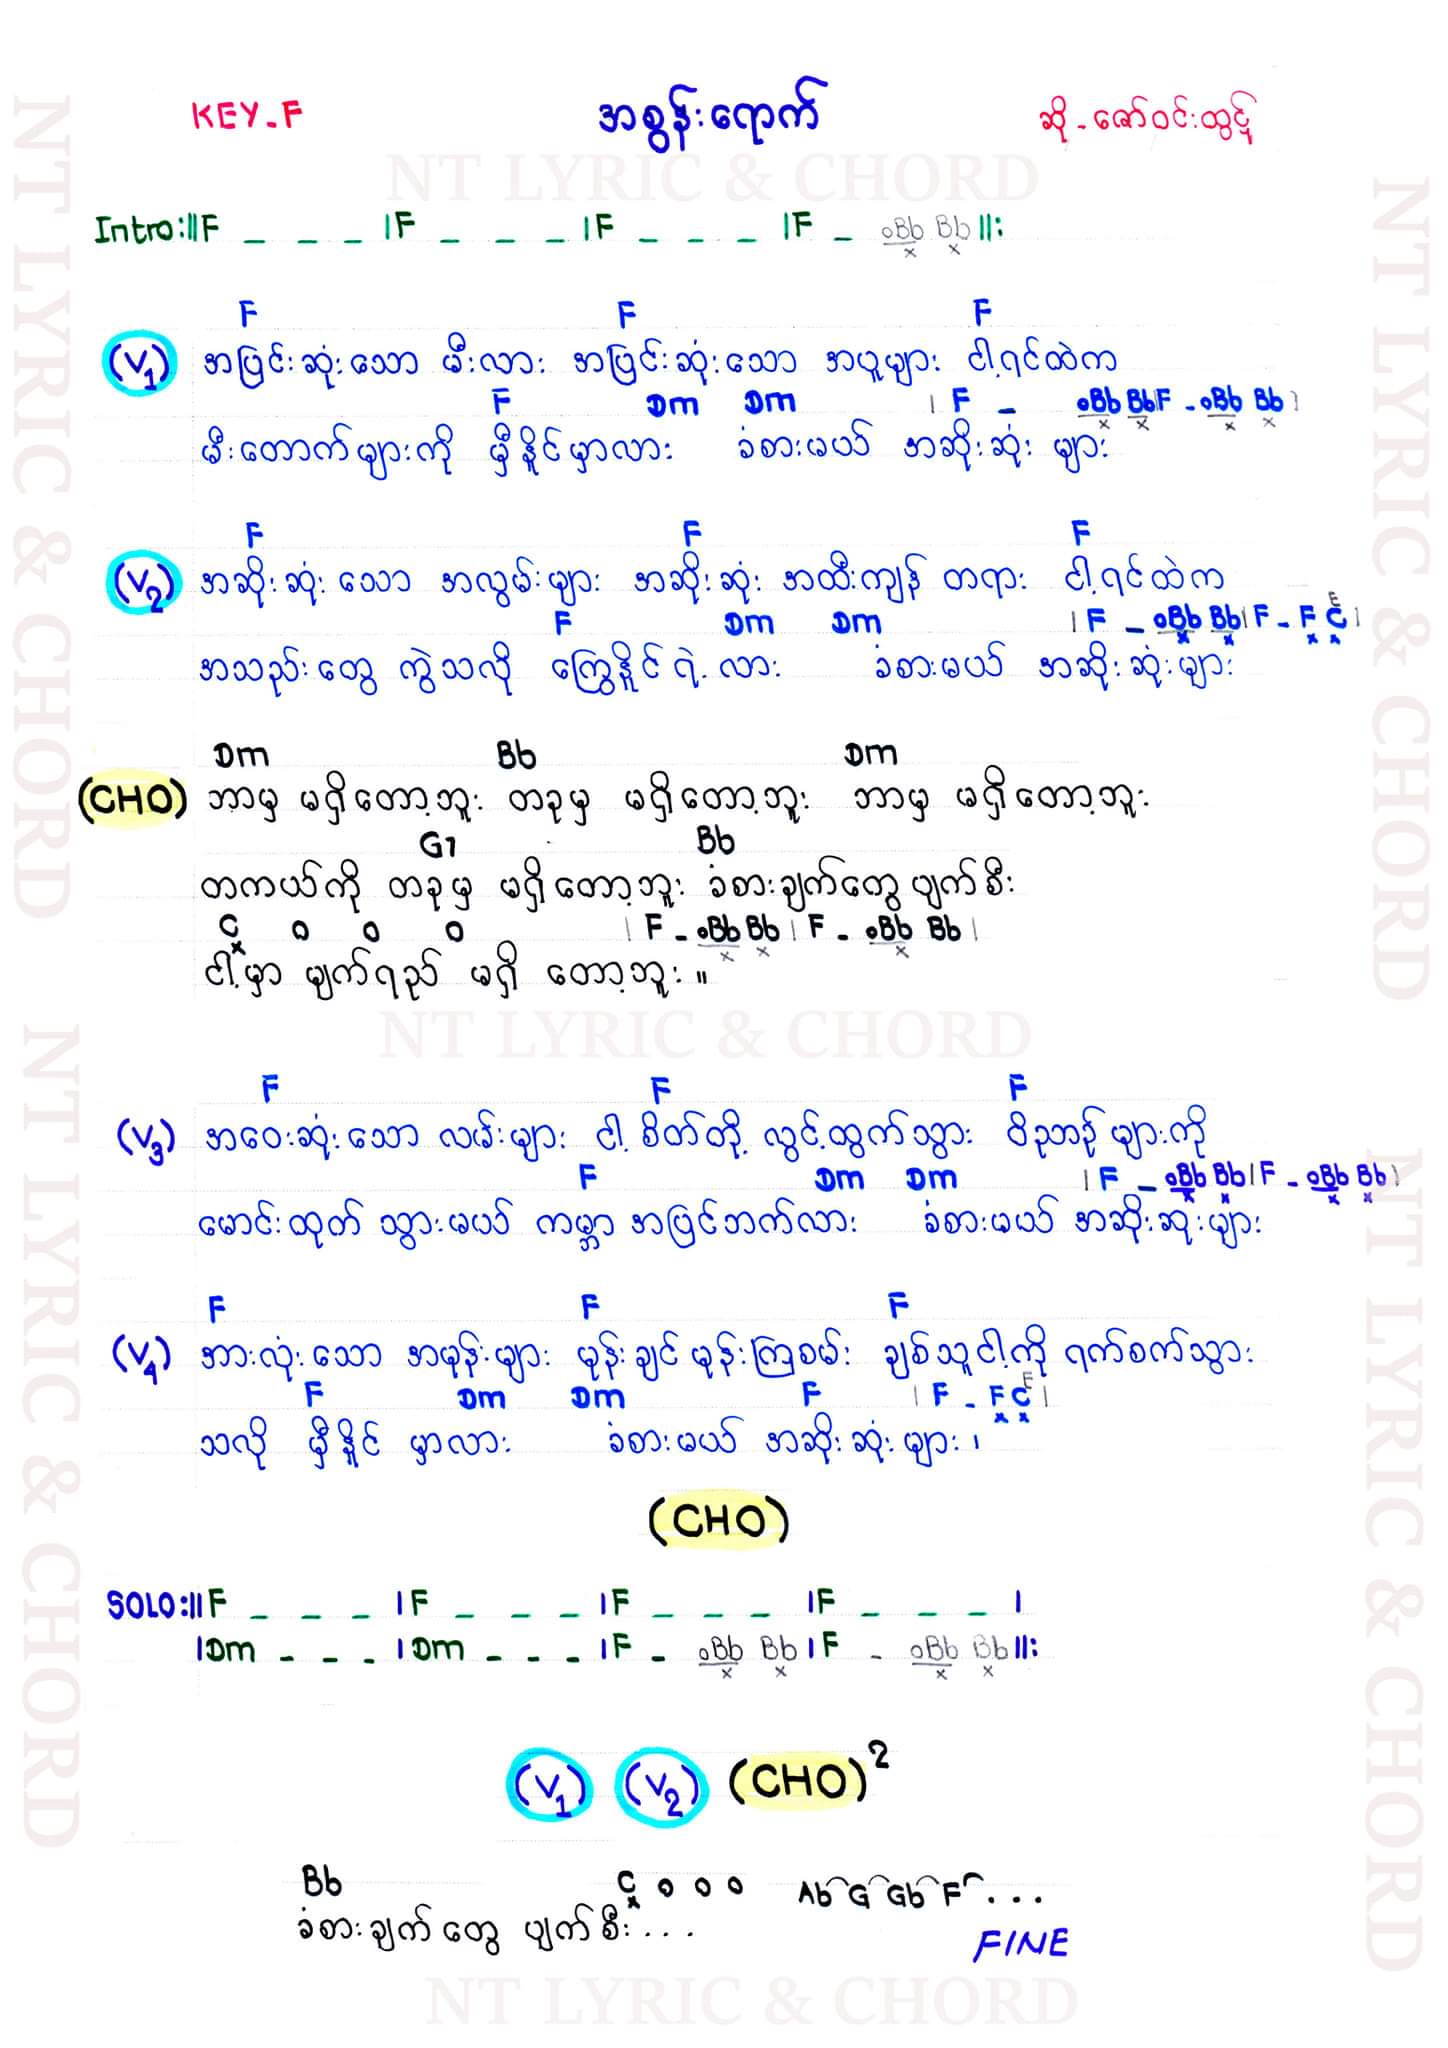 KEY-F အစွန်းရောက် ဆို-ဇော်ဝင်းထွဋ်
NT LYRIC & CHORD
Intro:||F _ _ _ |F _ _ _ |F _ _ _ |F _ oBb Bb ||:
x x
F F F
(V1) အပြင်းဆုံးသော မီးလား အပြင်းဆုံးသော အယူများ ငါ့ရင်ထဲက
F Dm Dm | F - oBb Bb|F - oBb Bb|
x x x x
မီးတောက်များကို မှီနိူင်မှာလား ခံစားမယ် အဆိုးဆုံး များ
F F F
(V2) အဆိုးဆုံး သော အလွမ်းများ အဆိုးဆုံး အထီးကျန် တရား ငါ့ရင်ထဲက
F Dm Dm | F - oBb Bb|F - F C E|
x x x x
အသည်းတွေ ကွဲသလို ကြွေနိူင်ရဲ့လား ခံစားမယ် အဆိုးဆုံးများ
Dm Bb Dm
(CHO) ဘာမှ မရှိတော့ဘူး တခုမှ မရှိတော့ဘူး ဘာမှ မရှိတော့ဘူး
G7 Bb
တကယ်ကို တခုမှ မရှိတော့ဘူး ခံစားချက်တွေပျက်စီး
C o o o | F - oBb Bb | F - oBb Bb |
x x x x
ငါ့မှာ မျက်ရည် မရှိ တော့ဘူး ။
NT LYRIC & CHORD
F F F
(V3) အဝေးဆုံးသော လမ်းများ ငါ့ စိတ်တို့ လွင့်ထွက်သွား ဝိဉာဉ်များကို
F Dm Dm | F - oBb Bb|F - oBb Bb|
x x x x
မောင်းထုတ် သွားမယ် ကမ္ဘာ အပြင်ဘက်လား ခံစားမယ် အဆိုးဆုးများ
F F F
(V4) အားလုံးသော အမုန်းများ မုန်းချင်မုန်းကြစမ်း ချစ်သူငါ့ကို ရက်စက်သွား
F Dm Dm F | F - F C E|
x x
သလို မှီနိူင် မှာလား ခံစားမယ် အဆိုးဆုံးများ ၊
(CHO)
SOLO:||F _ _ _ |F _ _ _ |F _ _ _ |F _ _ _ |
|Dm - - - |Dm - - - |F - oBb Bb |F - oBb Bb||:
x x x x
(V1) (V2) (CHO)2
Bb C o o o Ab G Gb F ...
x
ခံစားချက်တွေ ပျက်စီး ...
FINE
NT LYRIC & CHORD
NT LYRIC & CHORD
NT LYRIC & CHORD
NT LYRIC & CHORD
NT LYRIC & CHORD